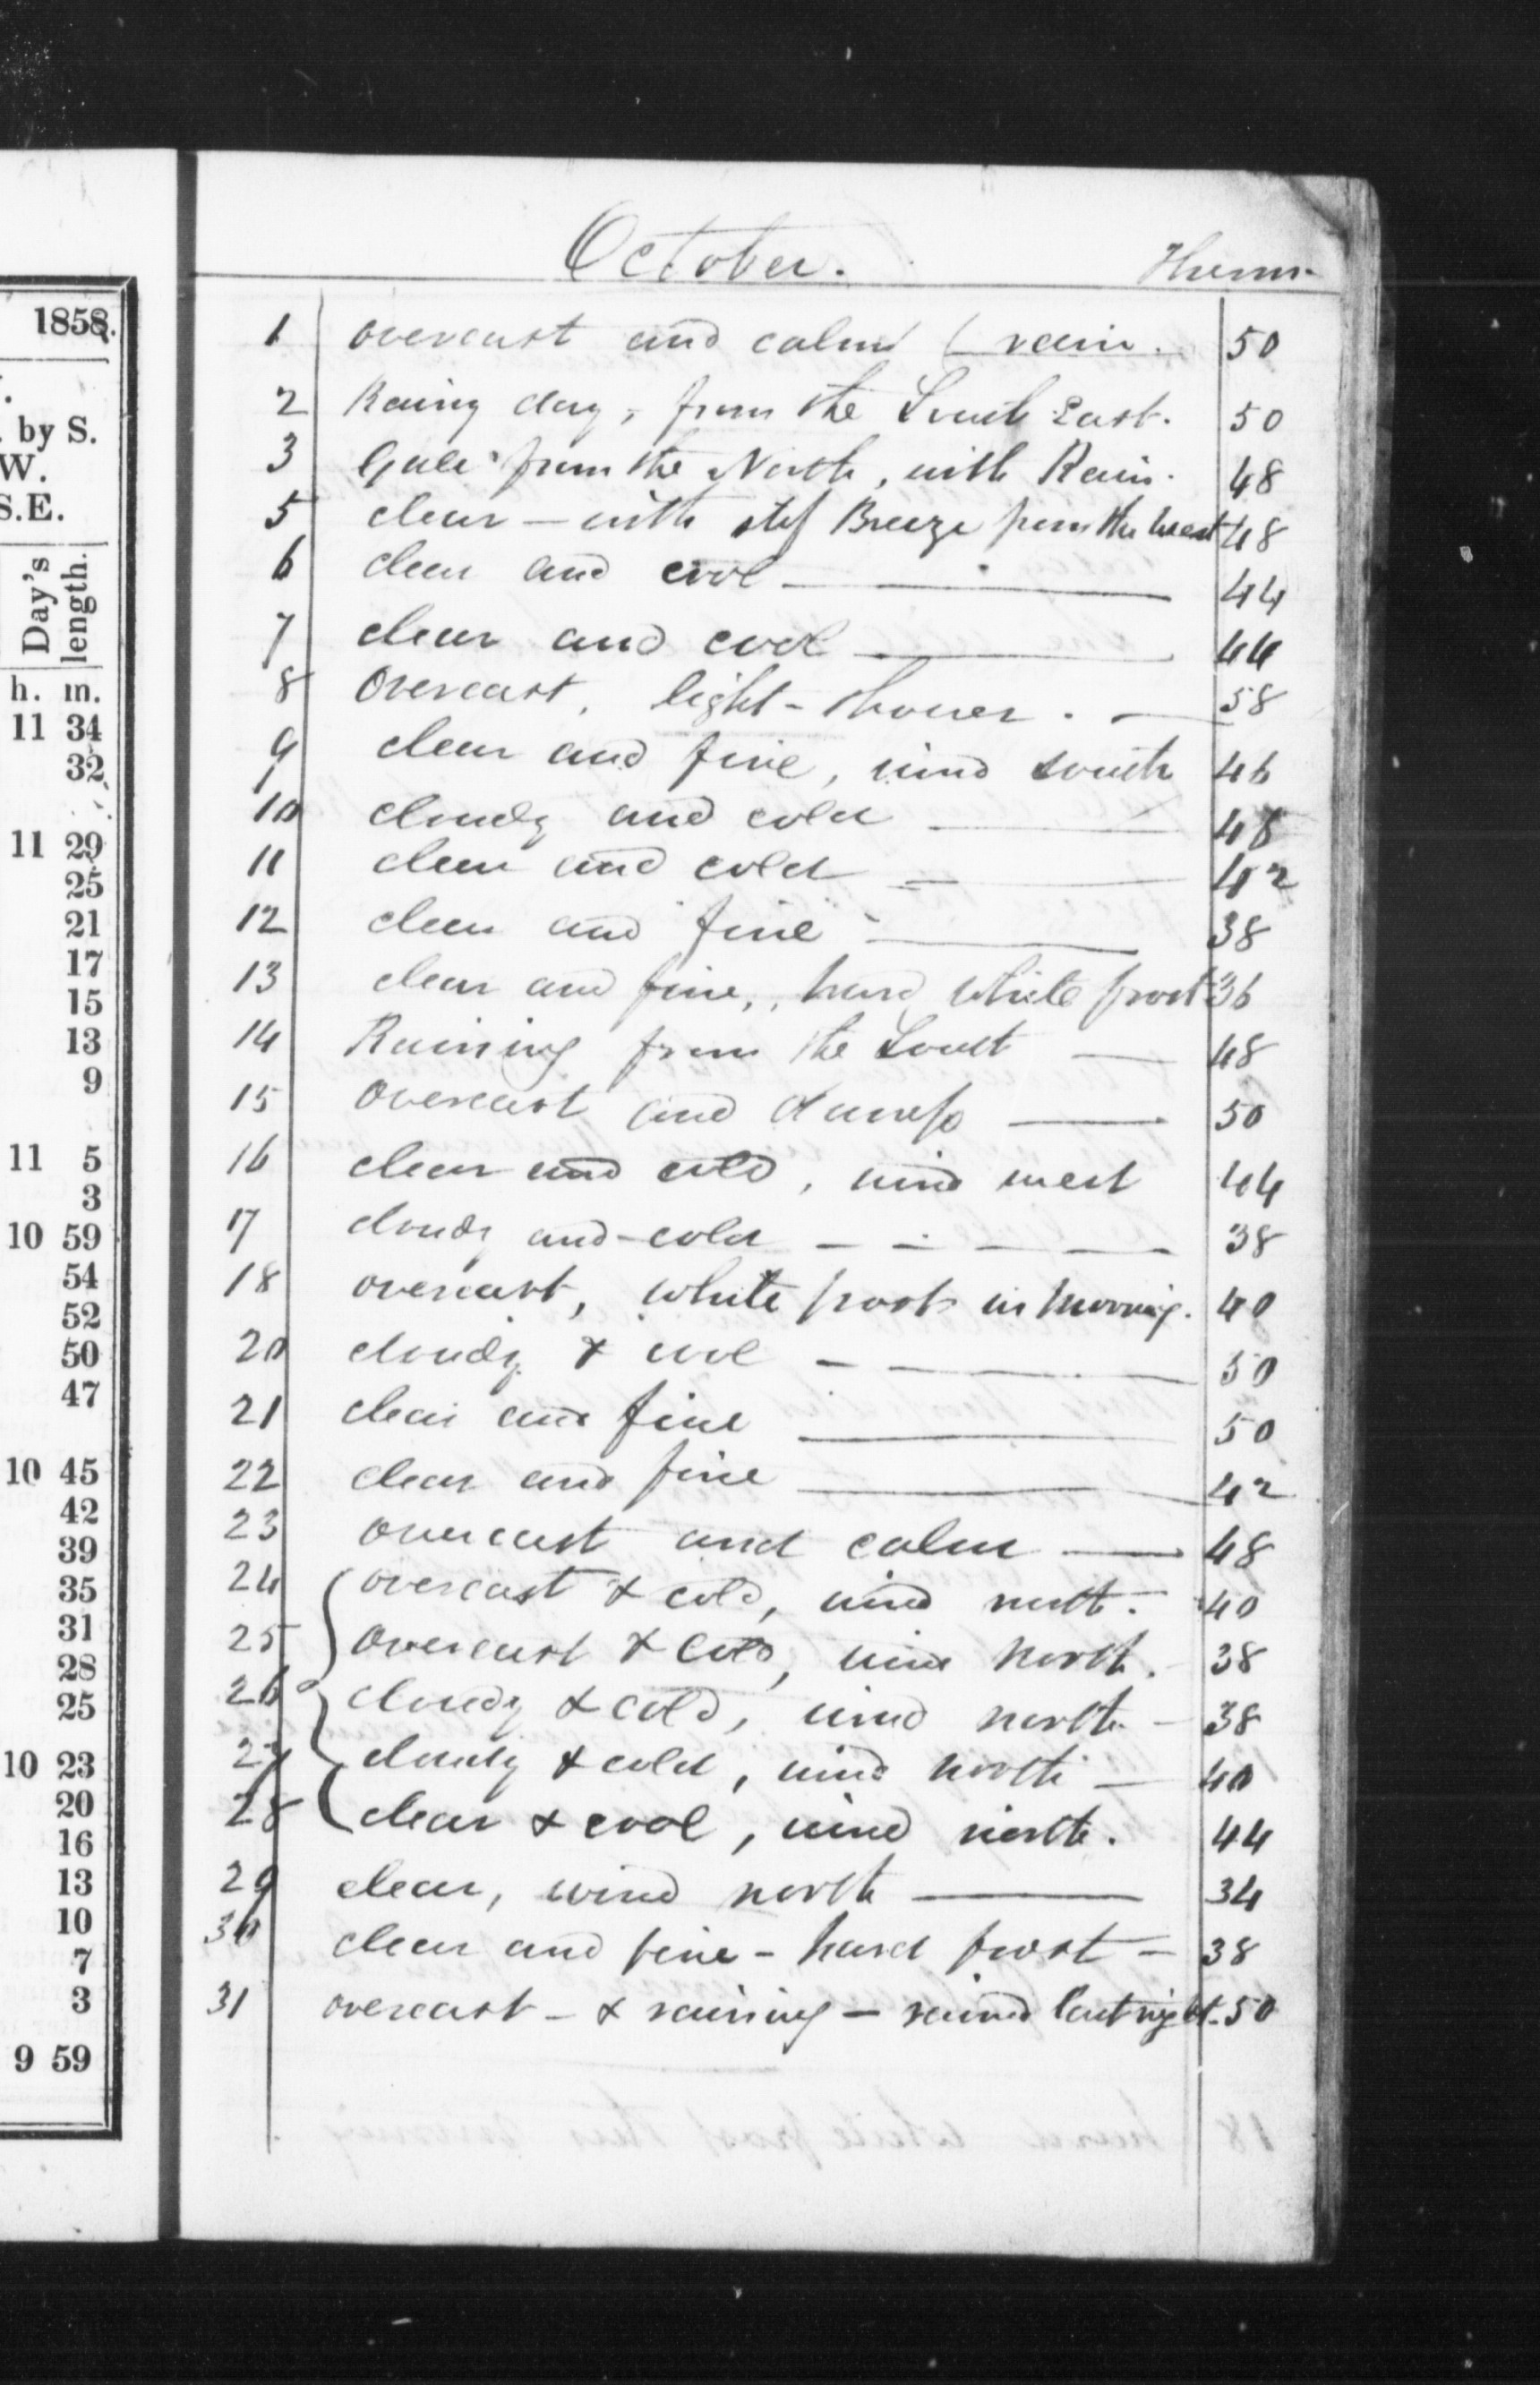 1858.
by S.
W.
S.E.
Day's length.
h. m.
11 34
32
11 29
25
21
17
15
13
9
11 5
3
10 59
54
52
50
47
10 45
42
39
35
31
28
25
10 23
20
16
13
10
7
3
9 59
October. Therm.
1 overcast and calm ( rain. 50
2 Rainy day, from the South East. 50
3 Gale from the North, with Rain. 48
5 clear — with stif Breeze from the west 48
6 clear and cool — 44
7 clear and cool — 44
8 Overcast, light - shower. — 58
9 clear and fine, wind south 46
10 cloudy and cold — 48
11 clear and cold — 42
12 clear and fine — 38
13 clear and fine, hard white frost 36
14 Raining from the South — 48
15 overcast and — 50
16 clear and cold, wind west 44
17 cloudy and - cold — 38
18 overcast, white frost in morning. 40
20 cloudy & cool — 50
21 clear and fine — 50
22 clear and fine — 42
23 overcast and calm — 48
24 overcast & cold, wind north. 40
25 overcast & cold, wind north. 38
26 cloudy & cold, wind north — 38
27 cloudy & cold, wind north — 40
28 clear & cool, wind north. 44
29 clear, wind north — 34
30 clear and fine - hard frost — 38
31 overcast - & raining — rained last night. 50